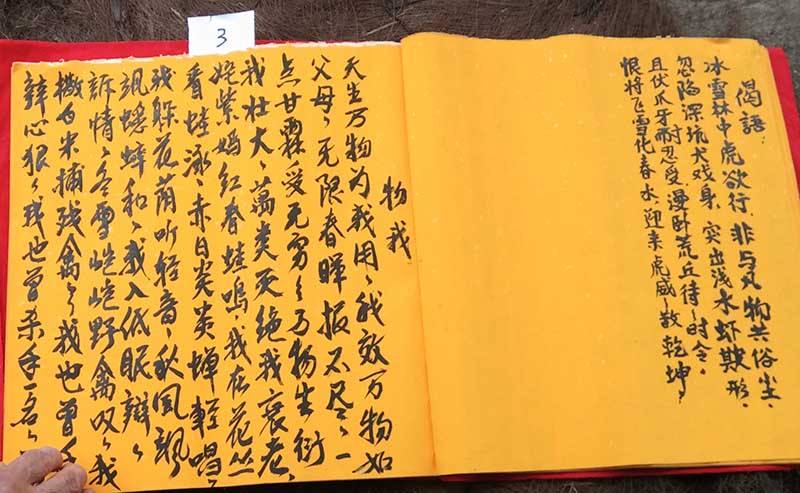 3
偈語
冰雪林中虎欲行.非与凡物共俗尘.
忽陷深坑犬戏身.突出浅水虾欺形.
且伏爪牙耐忍受.漫卧荒丘待~时令.
恨将飞雪化春水.迎来虎威~散乾坤、
物我
天生万物为我用、我效万物如
父母、无限春晖报不尽、一
点甘霖受无穷、万物生衍
我壮大、萬类灭绝我衰老、
姹紫嫣红春蛙鸣、我在花丛
看蛙泳、赤日炎炎蝉轻唱、
残躯花荫听轻音、秋风飘
飒蟋蟀和、我入低眠辩、
訴情、冬雪皑皑野禽叹、我
撒白米捕残禽、我也曾手
辣心狠、我也曾杀手一名、